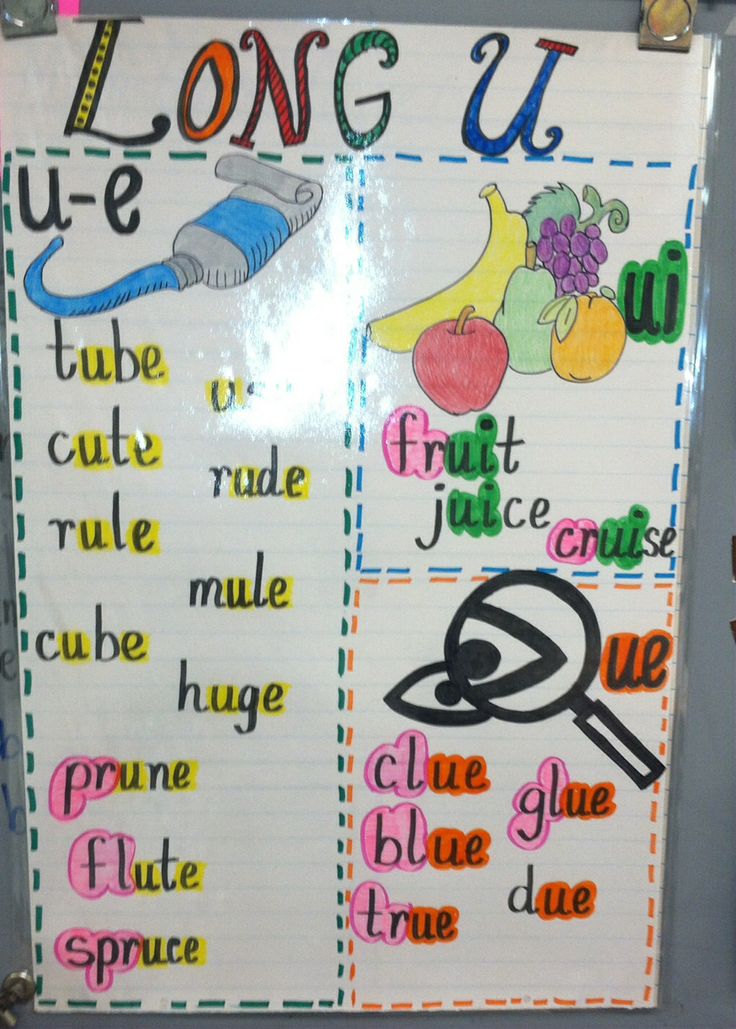 LONG U
u-e
tube
cute
rude
rule
mule
cube
huge
prune
flute
spruce
ui
fruit
juice
cruise
ue
clue
glue
blue
due
true